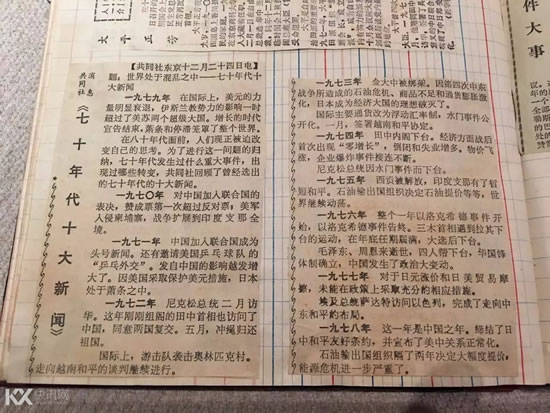 大平正芳
件大事
共同社消息
《七十年代十大新闻》
【共同社东京十二月二十四日电】
题：世界处于混乱之中——七十年代十
大新闻
一九七九年 在国际上，美元的力
量明显衰退，伊斯兰教势力的影响一时
超过了美苏两个超级大国。增长的时代
宣告结束，萧条和停滞笼罩了整个世界。
在八十年代面前，人们现正被迫改
变自己的思考。为了进行这一问题的归
纳，七十年代发生过什么重大事件，出
现过哪些转变，共同社回顾了曾经选出
的七十年代的十大新闻。
一九七〇年 对中国加入联合国的
表决，赞成票第一次超过反对票，美军
入侵柬埔寨，战争扩展到印度支那全
境。
一九七一年 中国加入联合国成为
头号新闻。还有邀请美国乒乓球队的
“乒乓外交”。发自中国的影响越发增
大了。因美国采取保护美元措施，日本
处于萧条之中。
一九七二年 尼克松总统二月访
华。这年刚刚组阁的田中首相也访问了
中国，同意两国复交。五月，冲绳归还
祖国。
国际上，游击队袭击奥林匹克村。
走向越南和平的谈判继续进行。
一九七三年 金大中被绑架。因第四次中东
战争所造成的石油危机、商品不足和通货膨胀激
化，日本成为经济大国的理想破灭了。
国际上主要通货改为浮动汇率制，水门事件公
开化。一月，签署越南和平协定。
一九七四年 田中内阁下台。经济方面战后
首次出现“零增长”，倒闭和失业增多。物价飞
涨，企业爆炸事件接连不断。
尼克松总统因水门事件而下台。
一九七五年 西贡被解放，印度支那有了冒
短和平。石油输出国组织决定石油提价等等，世
界继续动荡。
一九七六年 整个一年以洛克希德事件开
始，以洛克希德事件告终。三木首相遇到拉其下
台的运动，在年底任期届满，大选后下台。
毛泽东、周恩来逝世，四人帮下台，华国锋
体制确立，中国发生了政治大变动。
一九七七年 对于日元涨价和日美贸易摩
擦，未能在政策上采取充分的相应措施。
埃及总统萨达特访问以色列，完成了走向中
东和平的布局。
一九七八年 这一年是中国之年。缔结了日
中和平友好条约，并宣布了美中关系正常化。
石油输出国组织隔了两年决定大幅度提价，
能源危机进一步严重了。